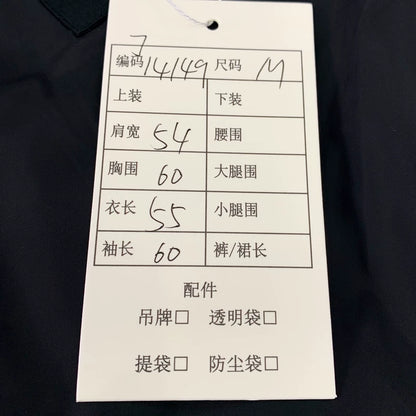 编码 J14149 尺码 M
上装 下装
肩宽 54 腰围
胸围 60 大腿围
衣长 55 小腿围
袖长 60 裤/裙长
配件
吊牌□ 透明袋□
提袋□ 防尘袋□